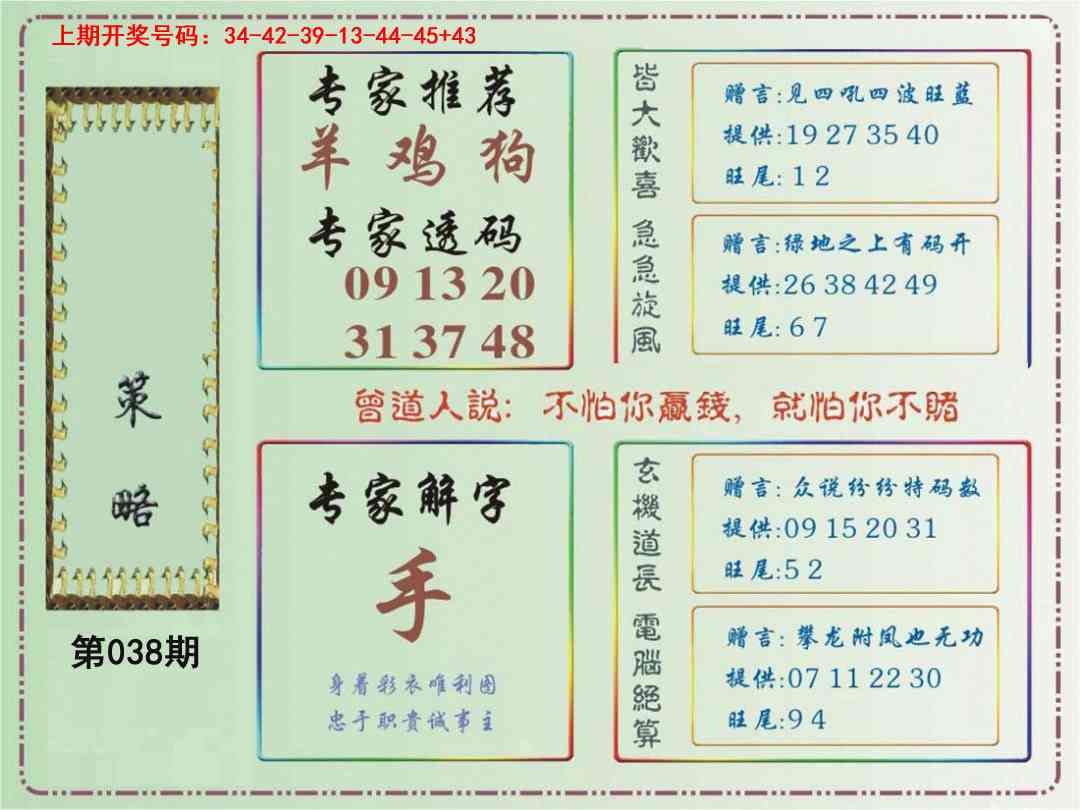 上期开奖号码：34-42-39-13-44-45+43
策略
第038期
专家推荐
羊 鸡 狗
专家透码
09 13 20
31 37 48
皆大歡喜
赠言:见四吼四波旺蓝
提供:19 27 35 40
旺尾: 1 2
急急旋風
赠言:绿地之上有码开
提供:26 38 42 49
旺尾: 6 7
曾道人説：不怕你贏錢，就怕你不賭
专家解字
手
身着彩衣唯利图
忠于职责诚事主
玄機道長
赠言: 众说纷纷特码数
提供:09 15 20 31
旺尾:5 2
電腦絕算
赠言: 攀龙附凤也无功
提供:07 11 22 30
旺尾:9 4